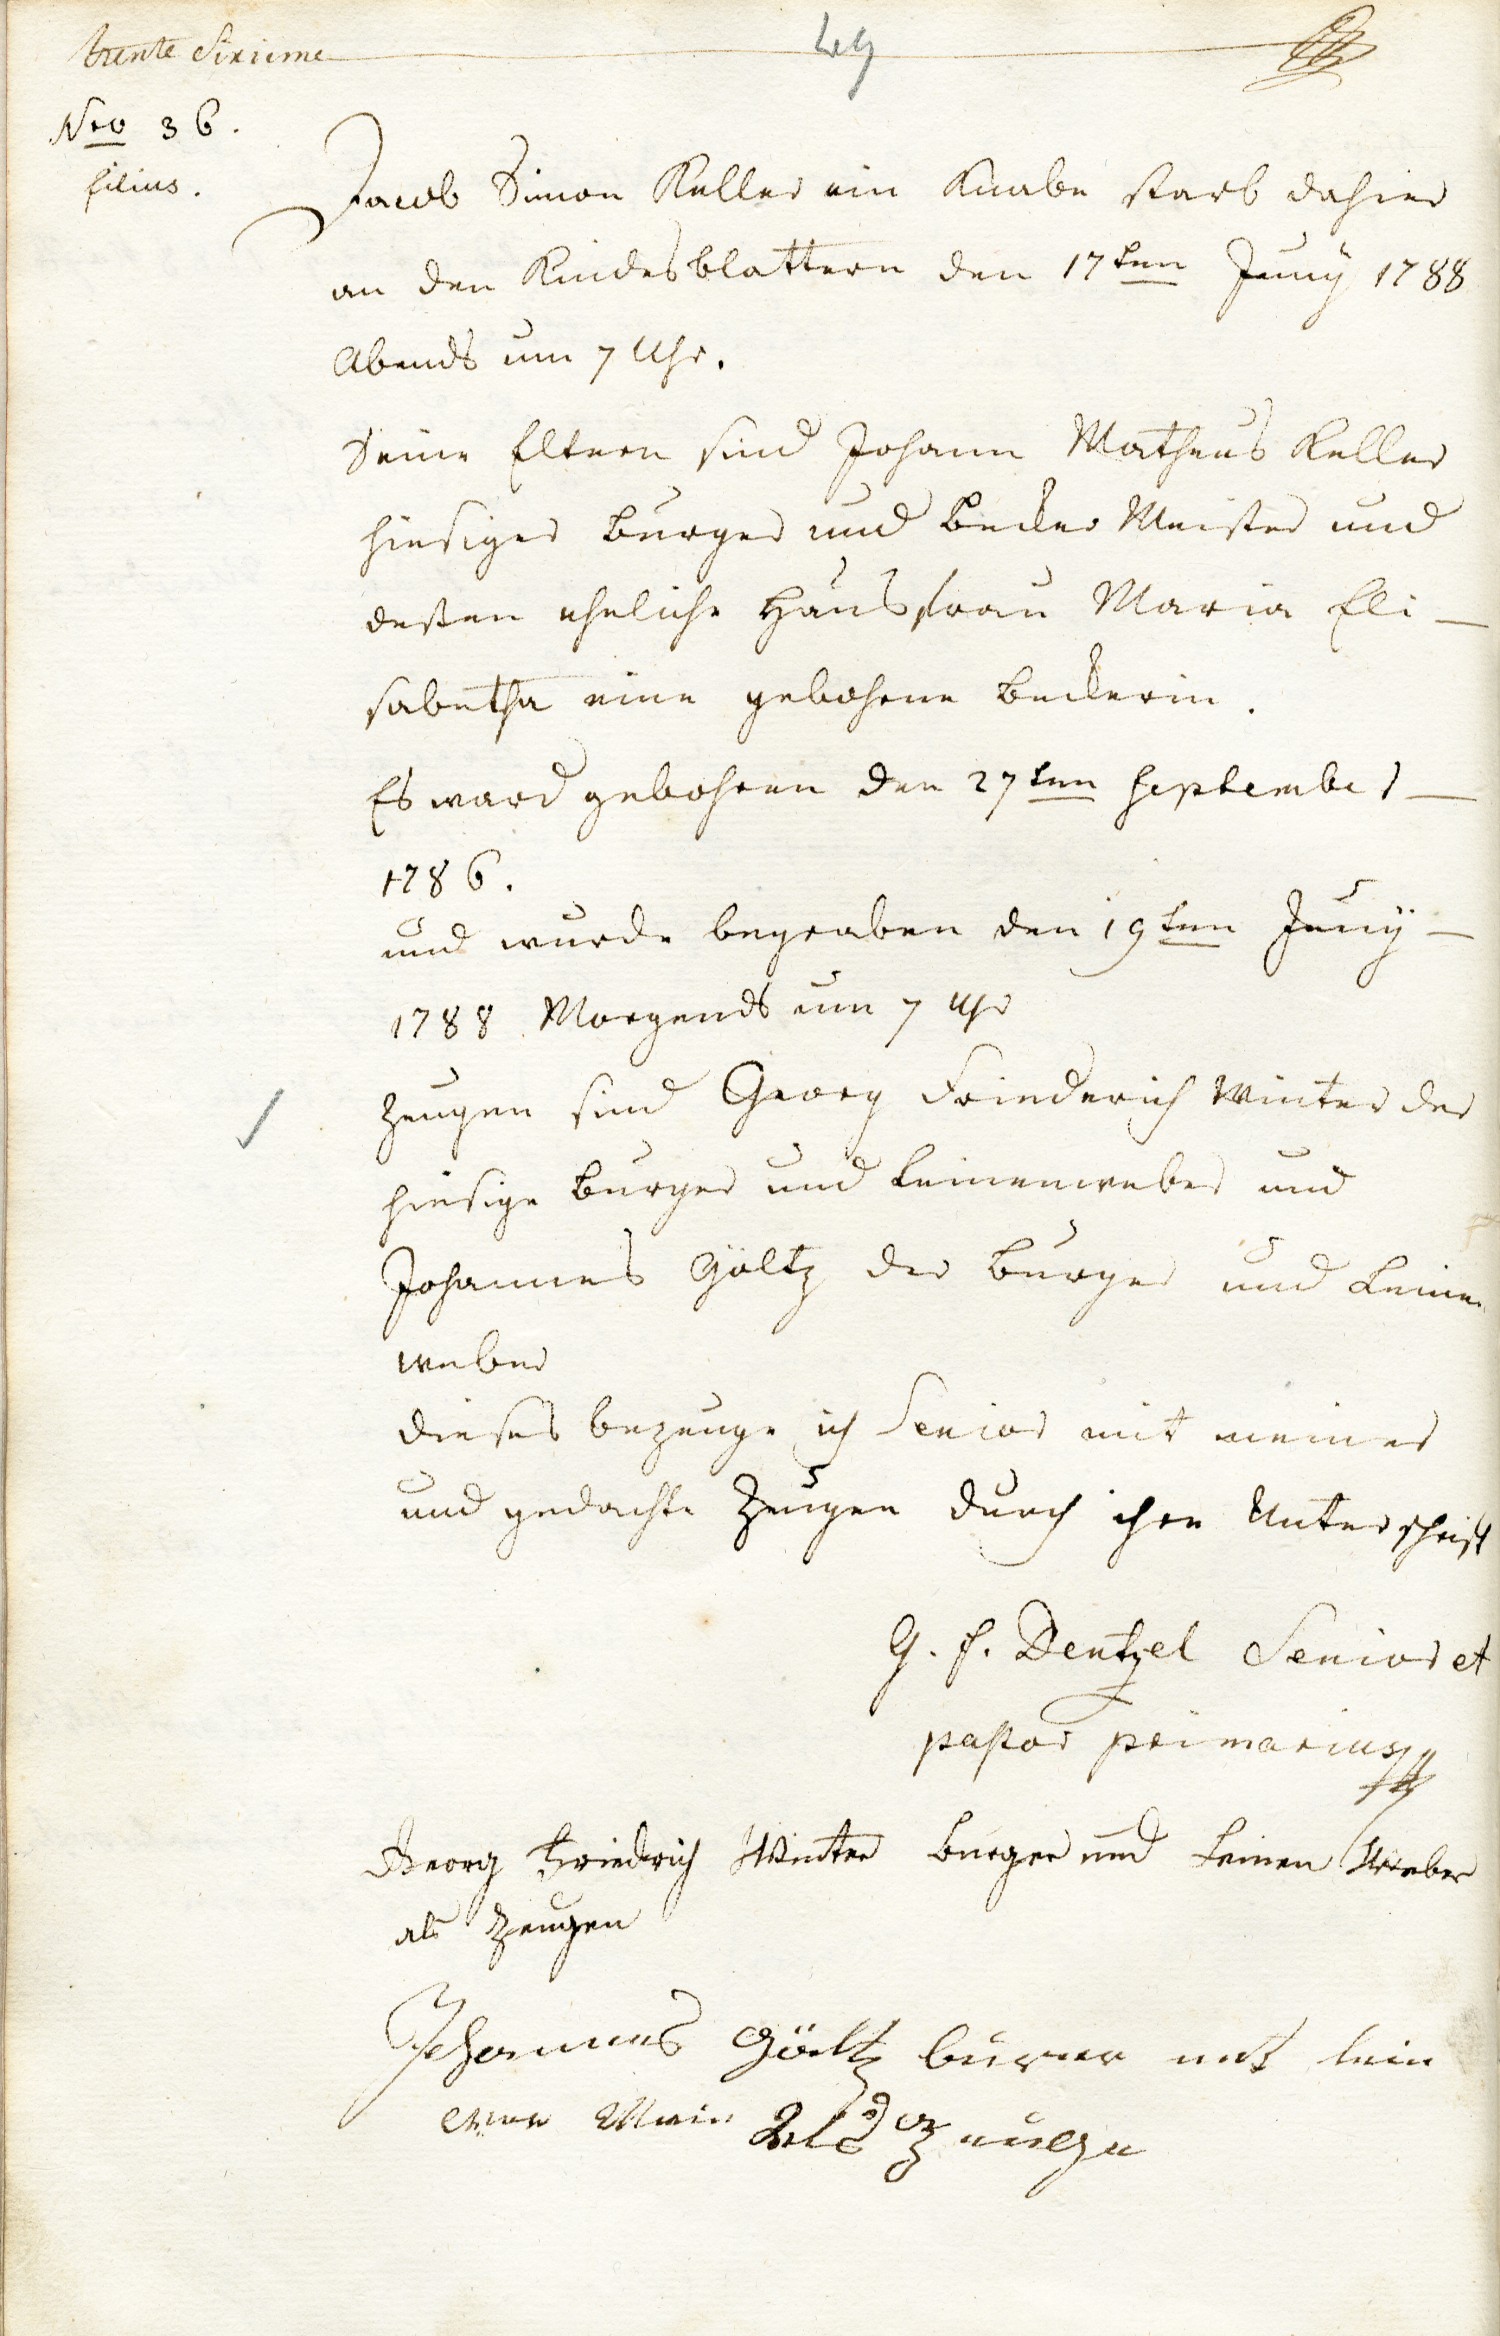 trente Sixieme
49
Nro 36.
filius.
Jacob Simon Keller ein Knabe starb dahier
an den Kindesblattern den 17ten Juny 1788
Abends um 7 Uhr.
Seine Eltern sind Johann Matheus Keller
hiesiger Burger und Becker Meister und
deßen eheliche Hausfrau Maria Eli-
sabetha eine gebohrne Beckerin.
Es ward gebohren den 27ten September
1786.
und wurde begraben den 19ten Juny
1788 Morgends um 7 Uhr
Zeugen sind Georg Friederich Winter der
hiesige Burger und Leinenweber und
Johannes Göltz der Burger und Leinen
weber
dieses bezeuge ich Senior mit meiner
und gedachte Zeugen durch ihre Unterschrift
G. F. Dentzel Senior et
pastor primarius
Georg Friedrich Winter burger und Leinen Weber
als Zeugen
Johannes Göltz burer unt lein
Als Zeuge